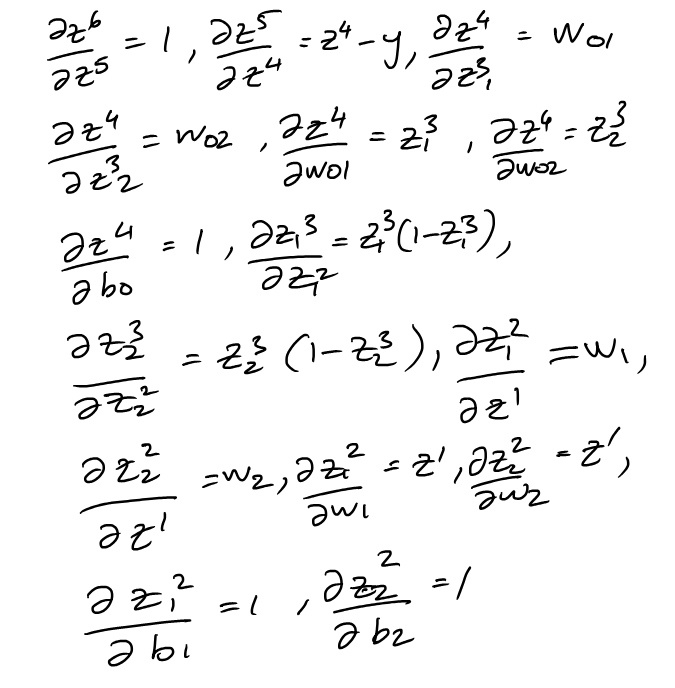 ∂z⁶/∂z⁵ = 1 , ∂z⁵/∂z⁴ = z⁴ - y, ∂z⁴/∂z₁³ = w01
∂z⁴/∂z₂³ = w02 , ∂z⁴/∂w01 = z₁³ , ∂z⁴/∂w02 = z₂³
∂z⁴/∂b0 = 1 , ∂z₁³/∂z₁² = z₁³(1-z₁³),
∂z₂³/∂z₂² = z₂³ (1-z₂³), ∂z₁²/∂z¹ = w₁,
∂z₂²/∂z¹ = w₂, ∂z₁²/∂w₁ = z¹, ∂z₂²/∂w₂ = z¹,
∂z₁²/∂b₁ = 1 , ∂z₂²/∂b₂ = 1